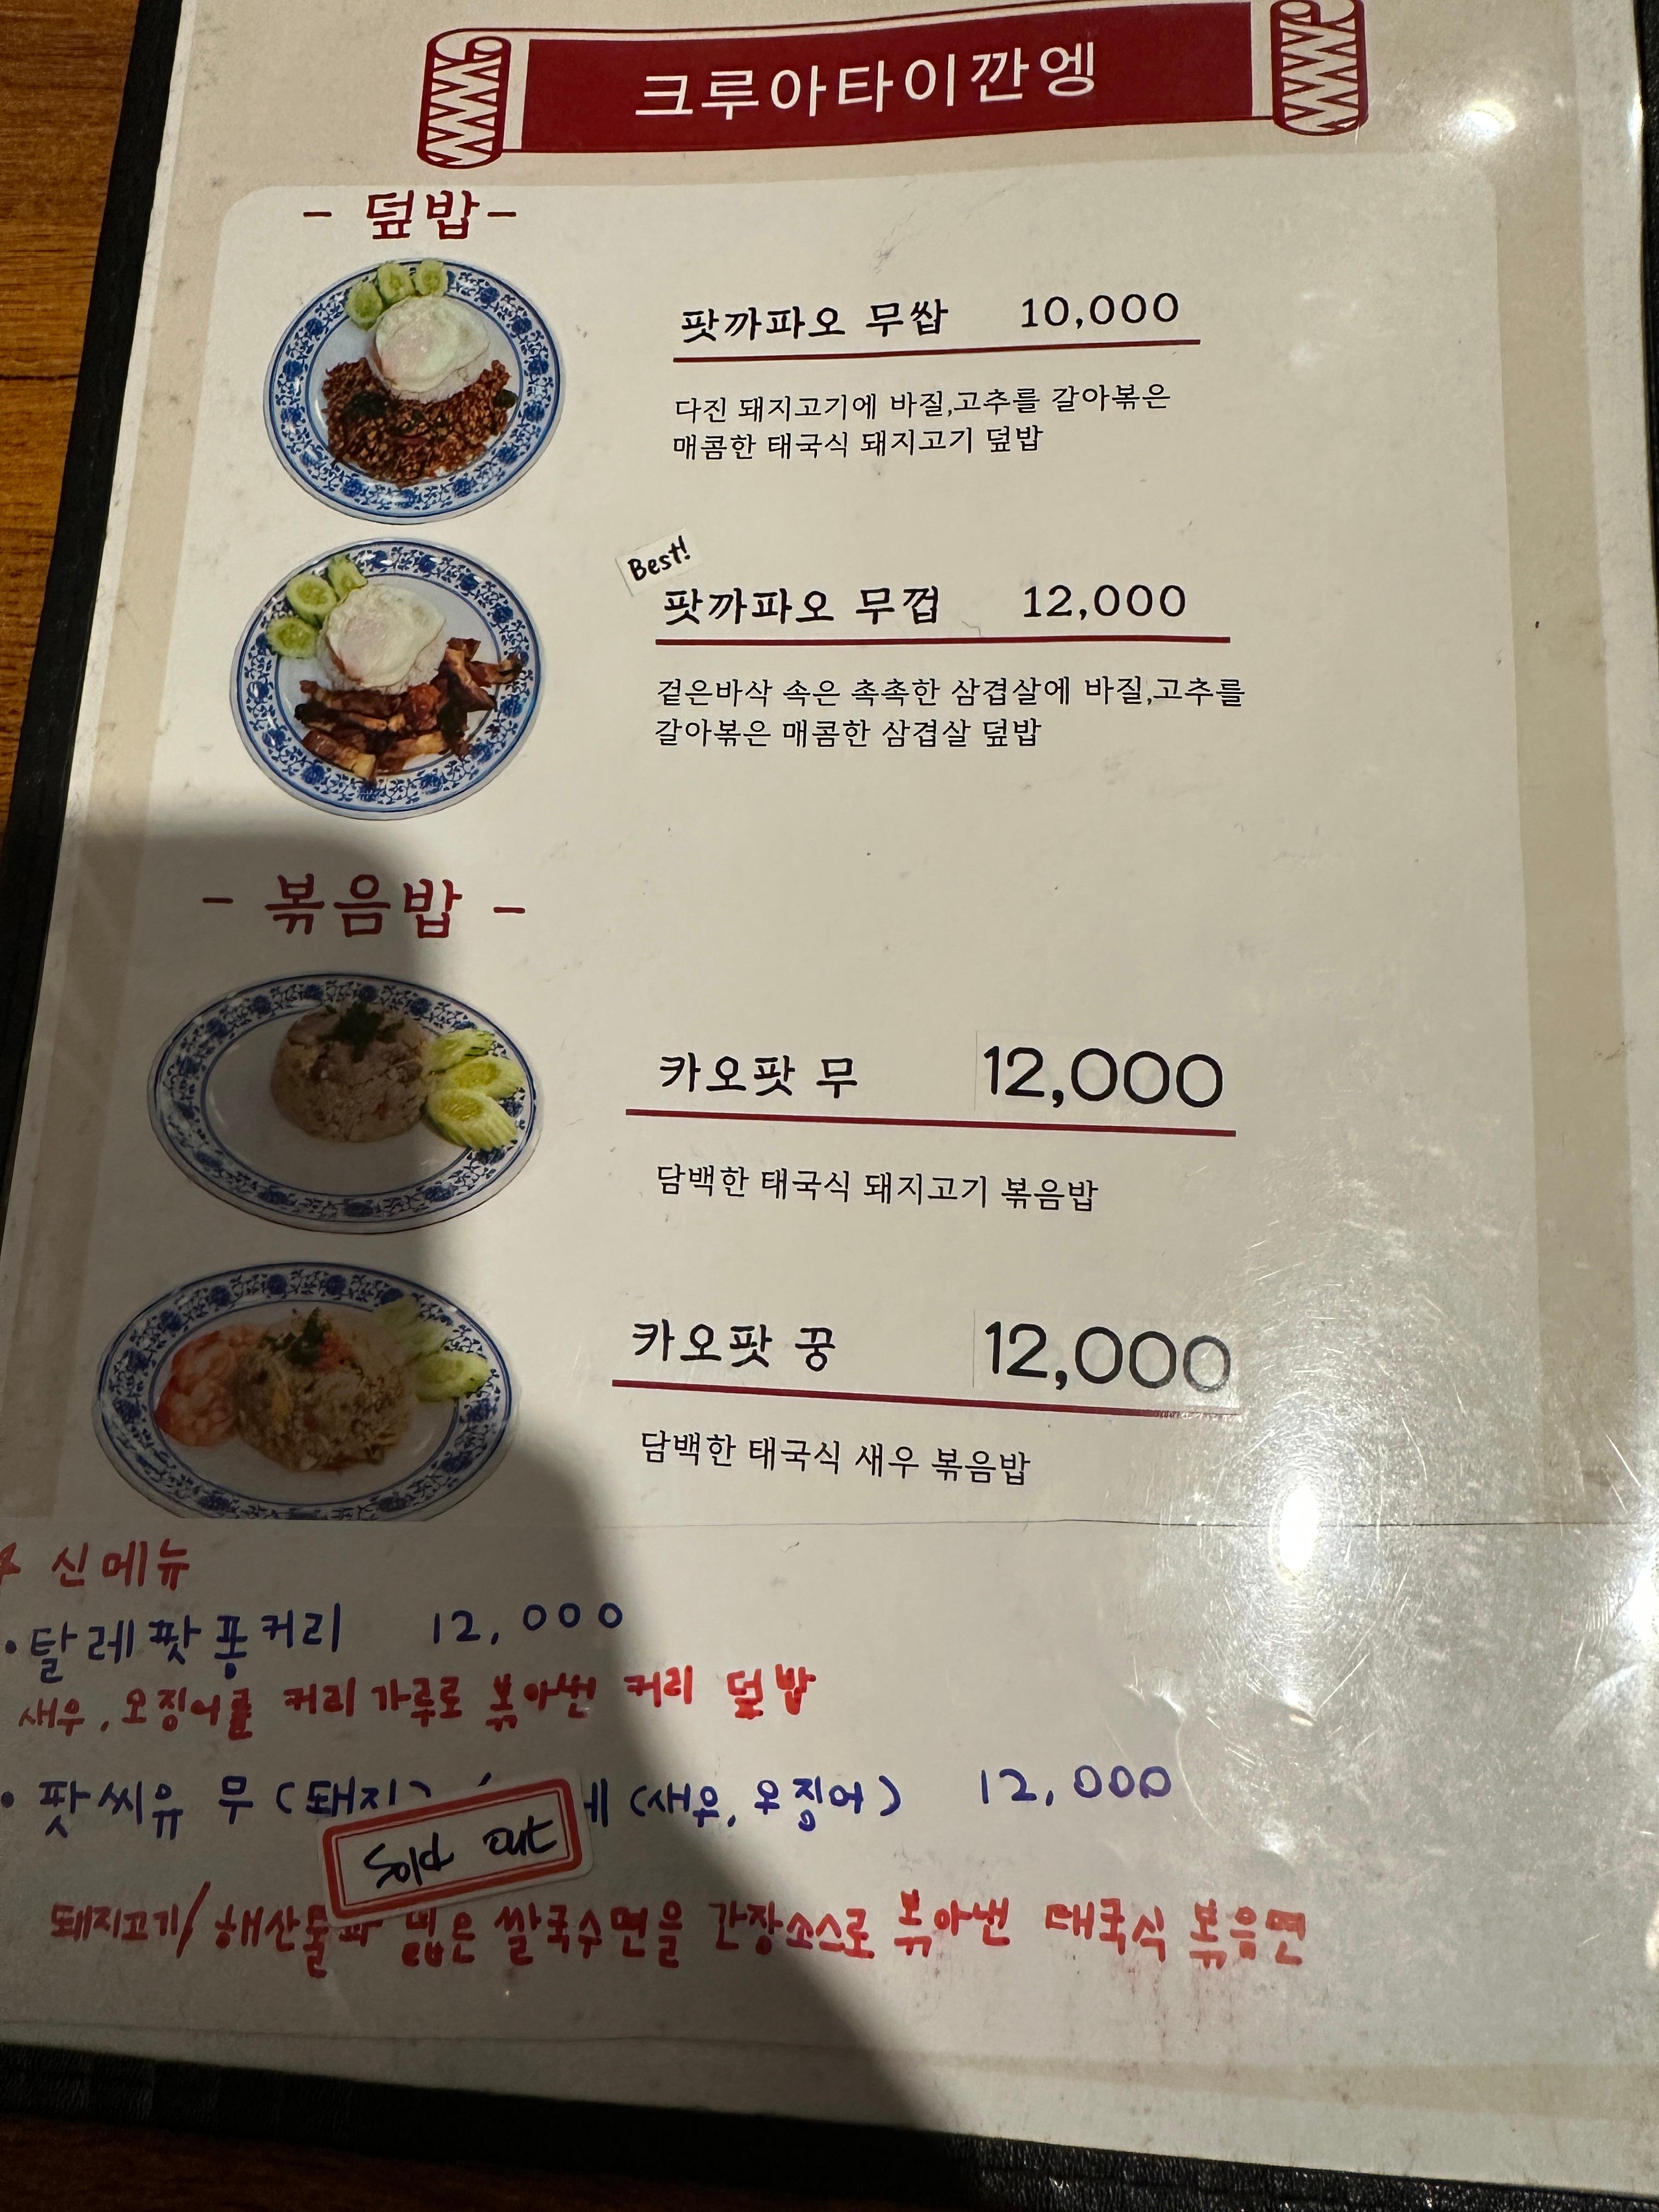 크루아타이깐엥
- 덮밥-
팟까파오 무쌉 10,000
다진 돼지고기에 바질,고추를 갈아볶은
매콤한 태국식 돼지고기 덮밥
Best!
팟까파오 무껍 12,000
겉은바삭 속은 촉촉한 삼겹살에 바질,고추를
갈아볶은 매콤한 삼겹살 덮밥
- 볶음밥 -
카오팟 무 12,000
담백한 태국식 돼지고기 볶음밥
카오팟 꿍 12,000
담백한 태국식 새우 볶음밥
신메뉴
· 탈레팟퐁커리 12,000
새우, 오징어를 커리 가루로 볶아낸 커리 덮밥
· 팟씨유 무 (돼지) (새우, 오징어) 12,000
Sold out
돼지고기/ 해산물과 넓은 쌀국수면을 간장소스로 볶아낸 태국식 볶음면